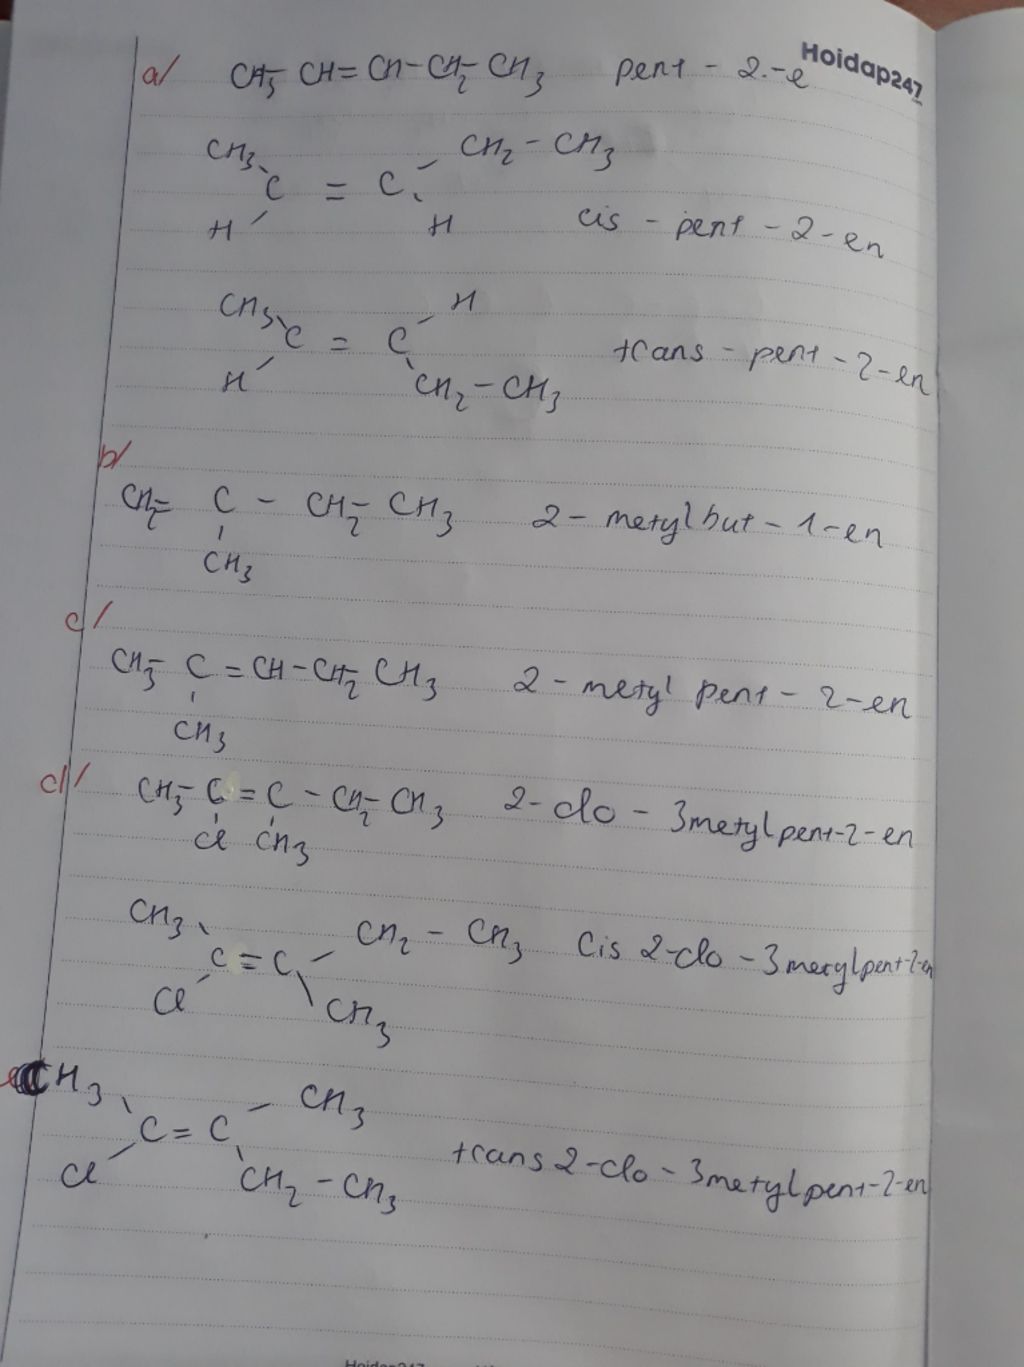 Hoidap247
a/ CH3- CH=CH-CH2- CH3 pent - 2.-e
CH3 CH2-CH3
C = C
H H cis - pent - 2-en
CH3 H
C = C trans - pent-2-en
H CH2-CH3
b/
CH2= C - CH2- CH3 2- metylbut-1-en
CH3
c/
CH3- C =CH-CH2- CH3 2-metyl pent-2-en
CH3
d/ CH3- C = C - CH2- CH3 2-clo - 3metylpent-2-en
Cl CH3
CH3 CH2 - CH3 Cis 2-clo -3metylpent-2-en
C = C
Cl CH3
CH3 CH3
C = C trans 2-clo-3metylpent-2-en
Cl CH2 -CH3